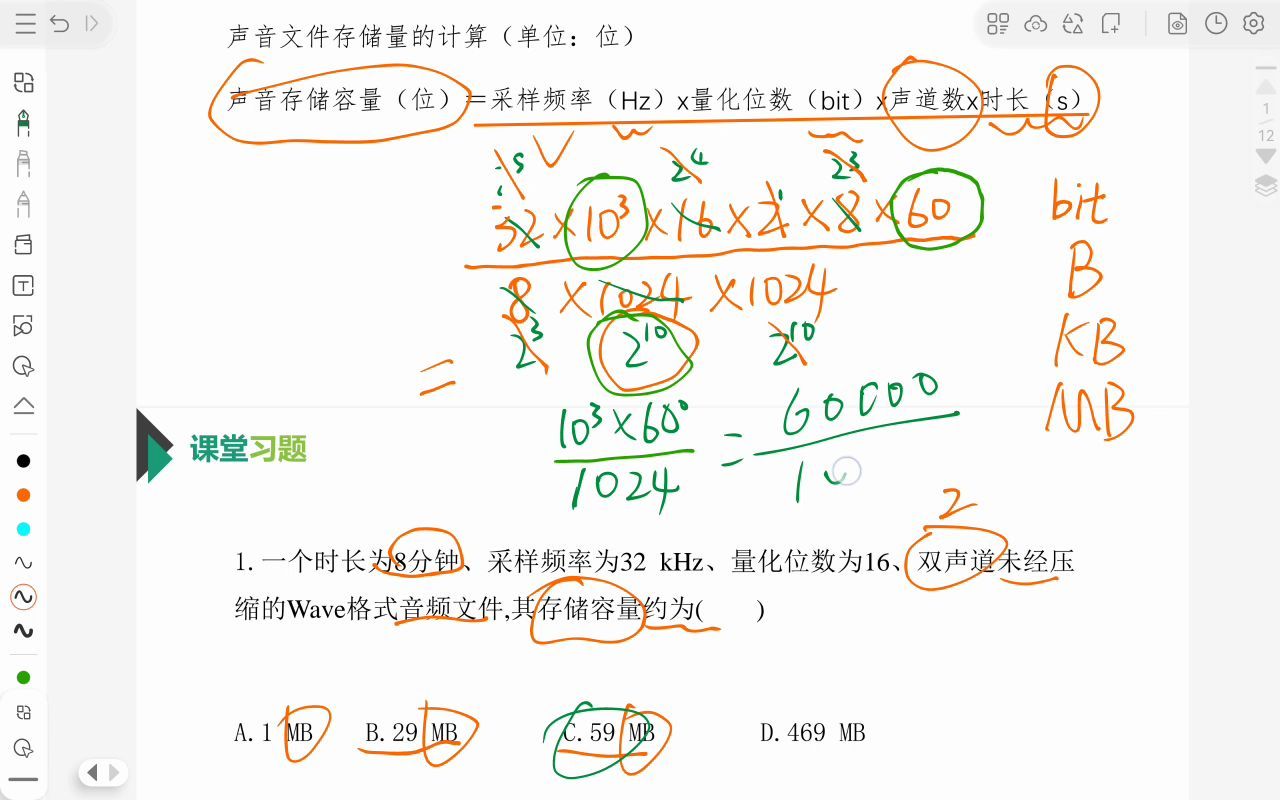 声音文件存储量的计算（单位：位）
声音存储容量（位）=采样频率（Hz）x量化位数（bit）x声道数x时长（s）
5 2^4 2^3
32×10^3×16×2×8×60
8×1024×1024
2^3 2^10 2^10
=
10^3×60 = 60000
1024
bit
B
KB
MB
1
12
课堂习题
2
1.一个时长为8分钟、采样频率为32 kHz、量化位数为16、双声道未经压
缩的Wave格式音频文件,其存储容量约为( )
A.1 MB B.29 MB C.59 MB D.469 MB